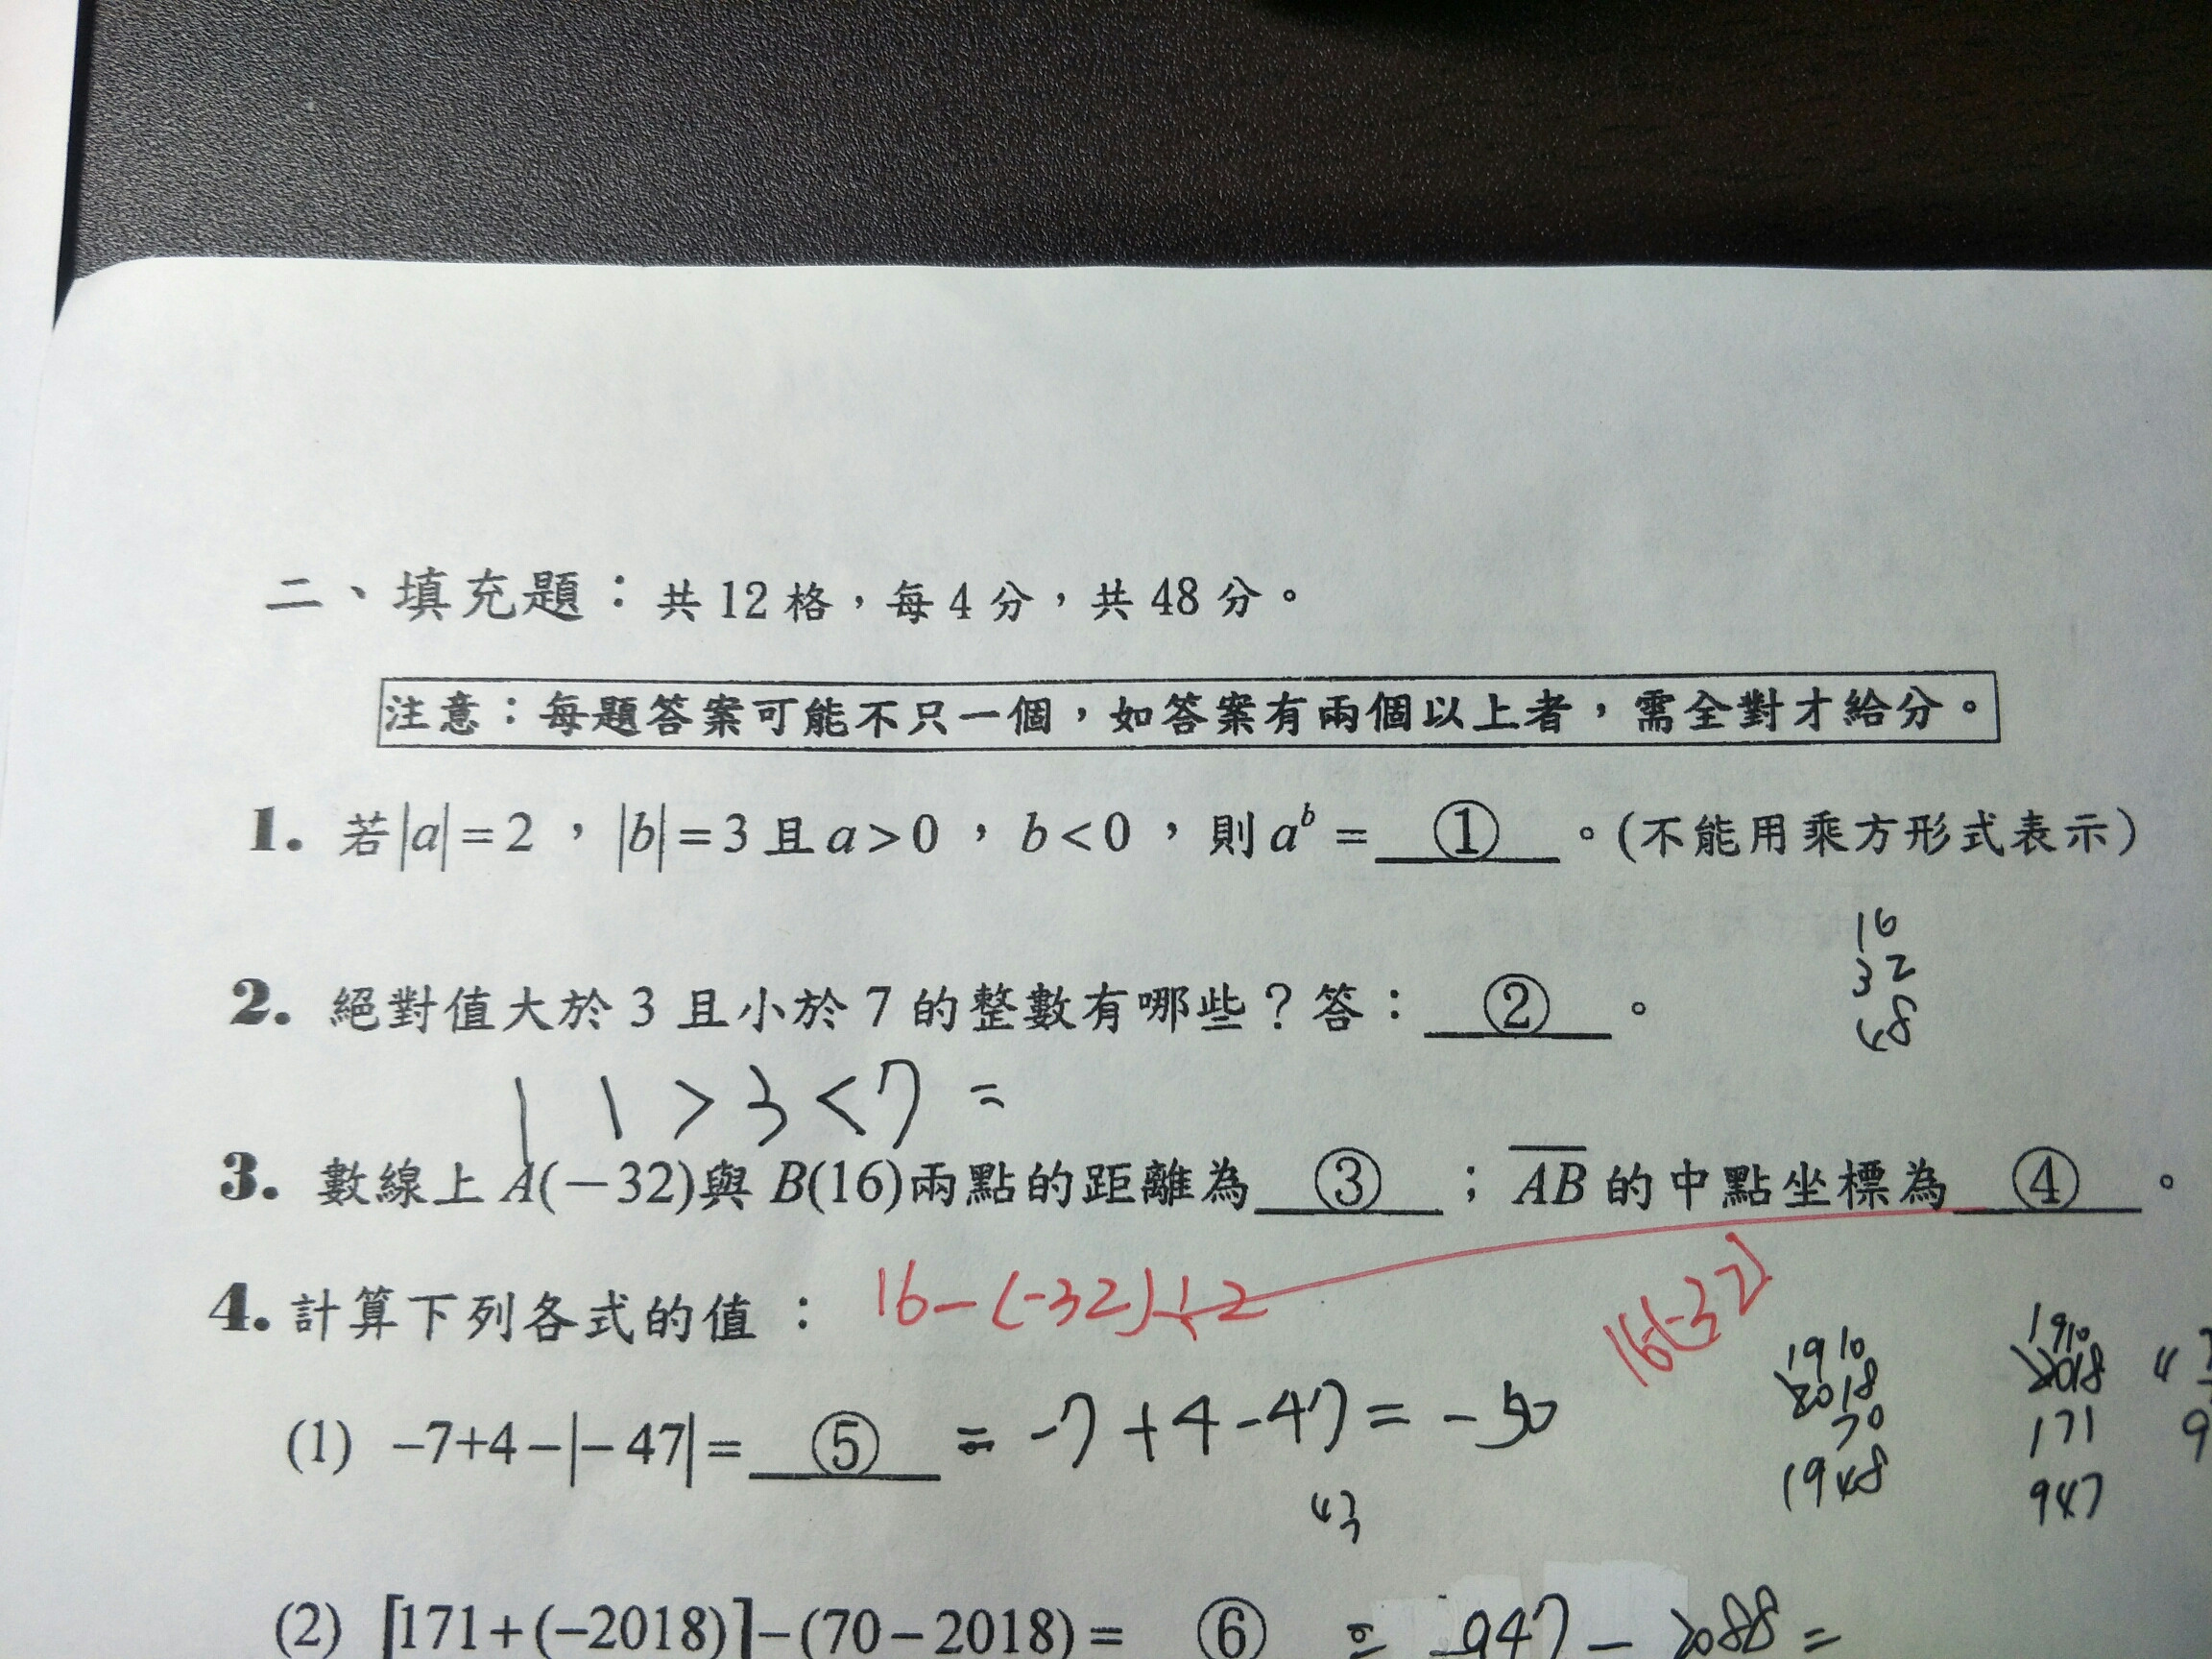 二、填充題：共12格，每4分，共48分。
注意：每題答案可能不只一個，如答案有兩個以上者，需全對才給分。
1. 若|a|=2，|b|=3且a>0，b<0，則a^b=①。(不能用乘方形式表示)
16
32
48
2. 絕對值大於3且小於7的整數有哪些？答：②。
| | > 3 < 7 =
3. 數線上A(−32)與B(16)兩點的距離為③；AB的中點坐標為④。
16-(-32)÷2
16-(-32)
4. 計算下列各式的值：
1910
2018
70
1948
1910
2018
171
947
(1) −7+4−|−47|=⑤ = -7+4-47=-50
43
(2) [171+(−2018)]−(70−2018)=⑥ = -947-2088=